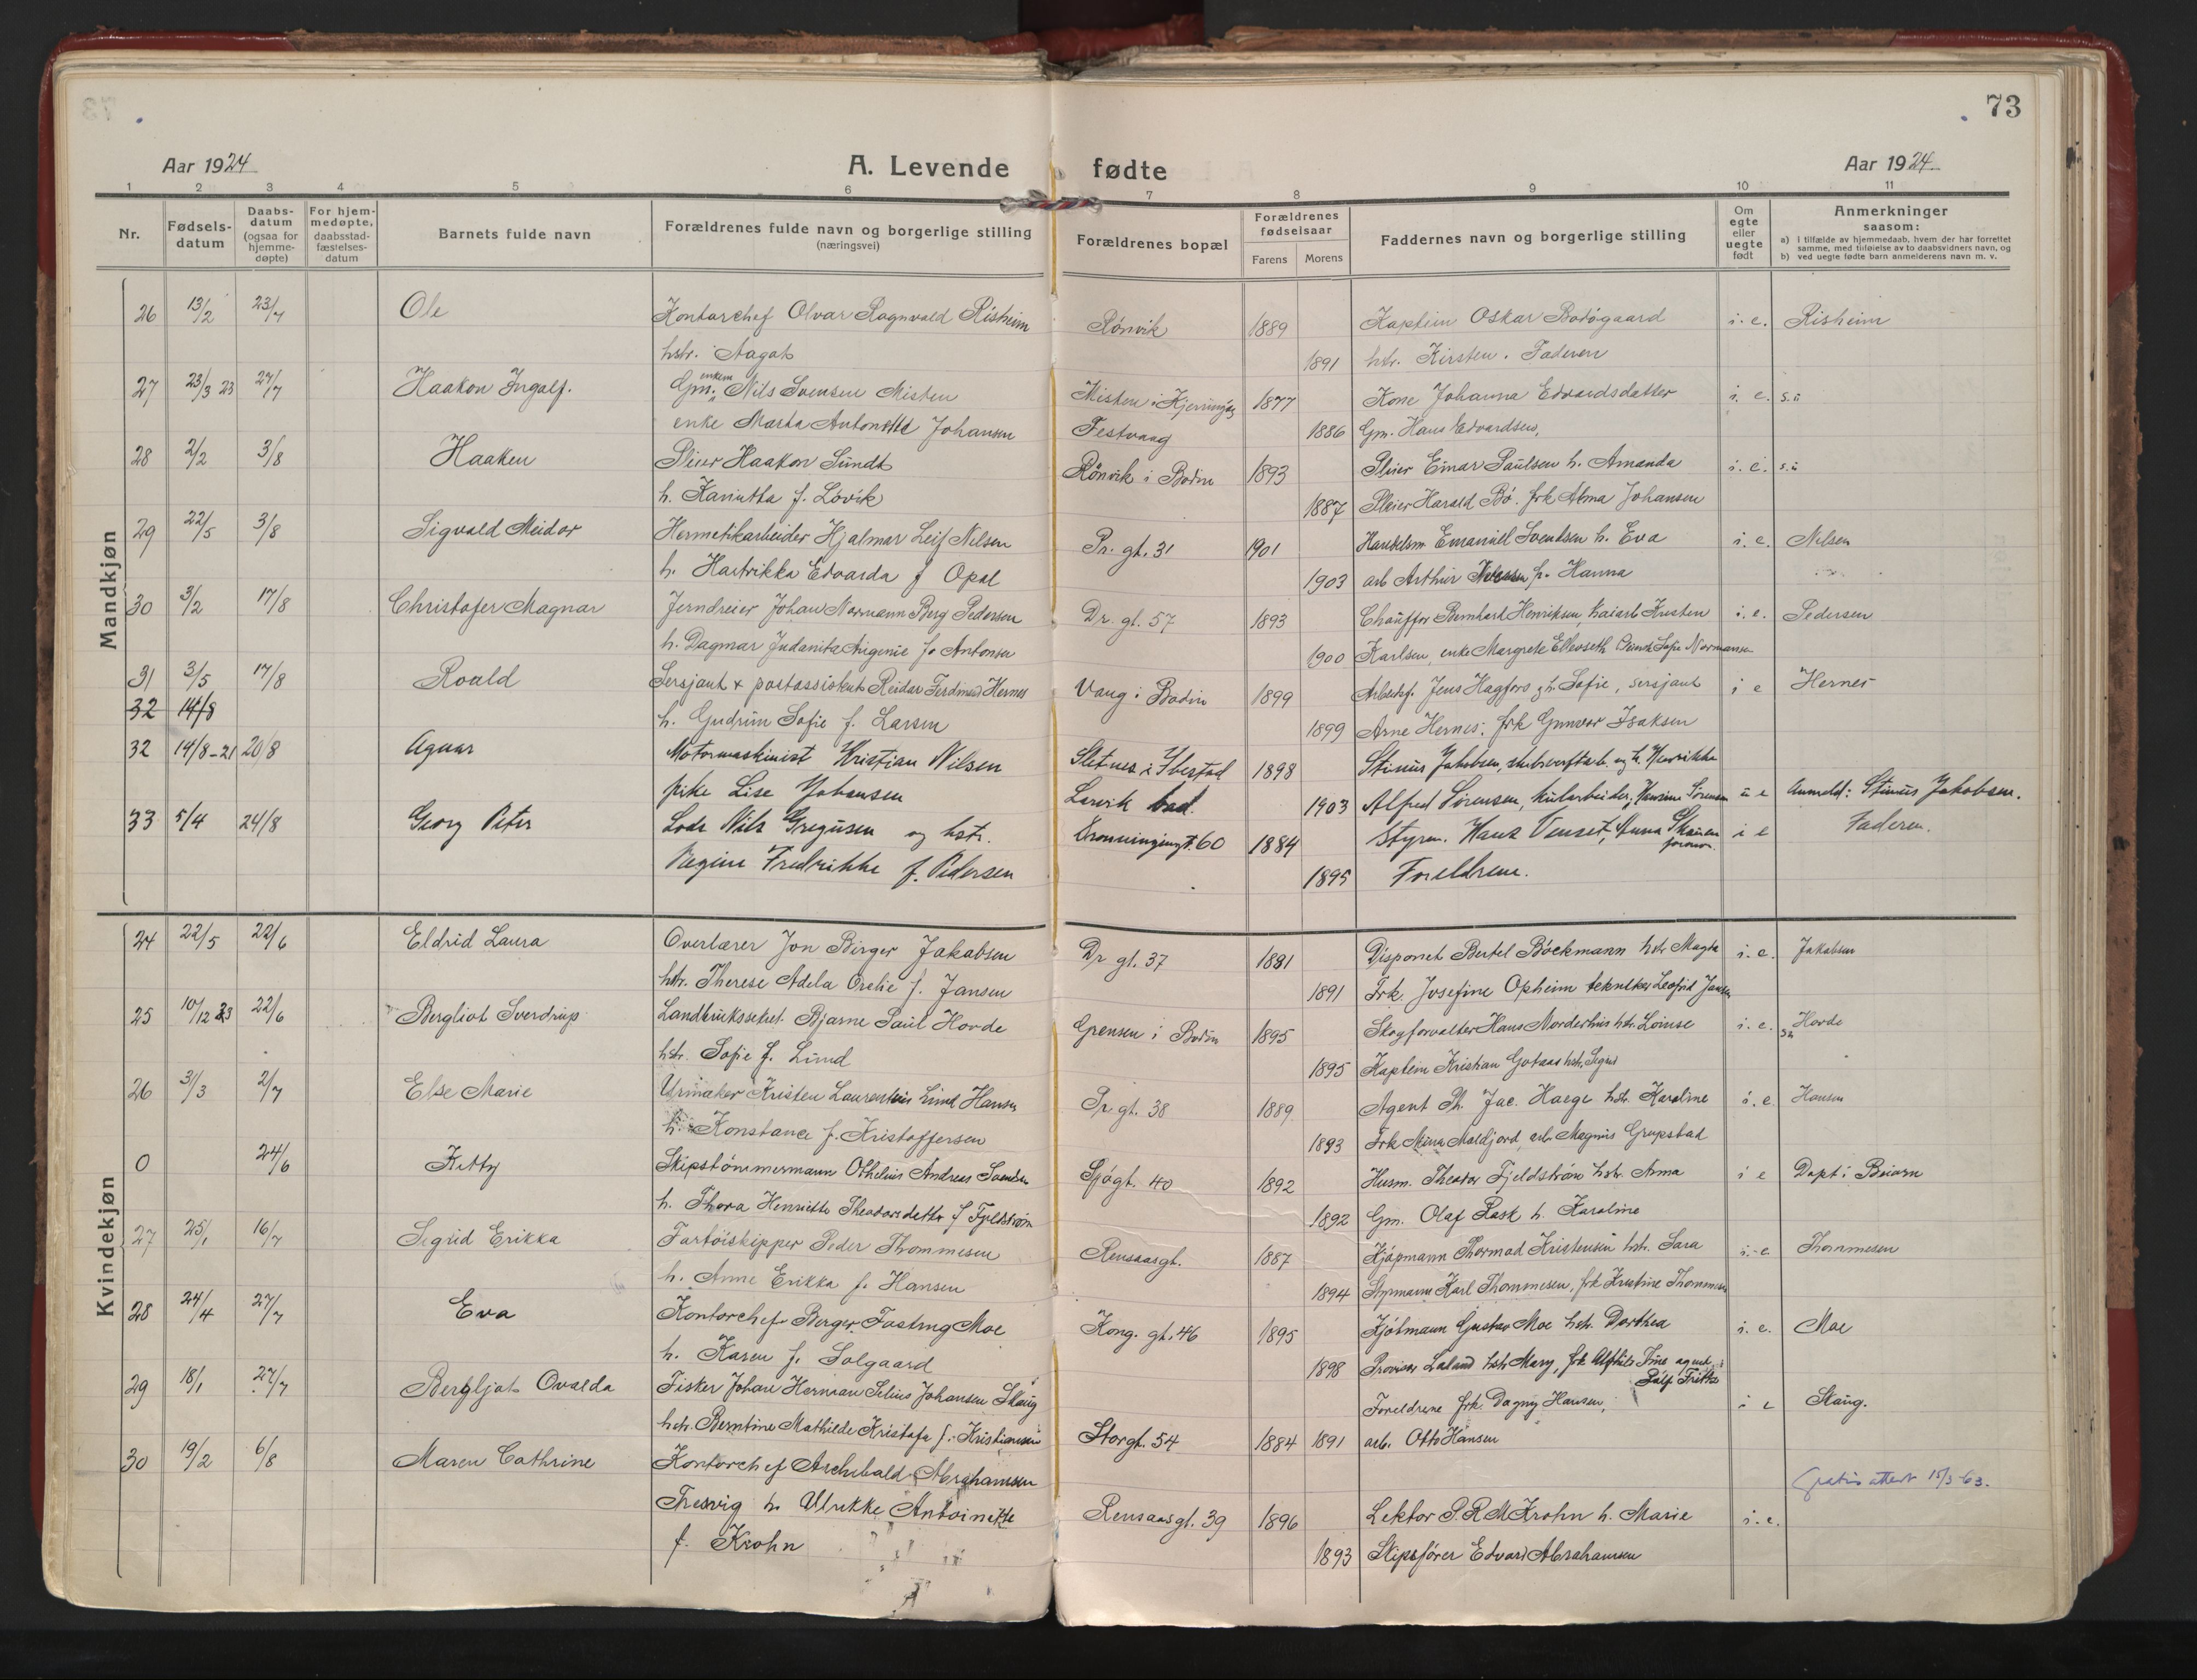 73
Aar 1924
A. Levende fødte
Aar 1924
1 2 3 4 5 6 7 8 9 10 11
Nr.
Fødsels-
datum
Daabs-
datum
(ogsaa for
hjemme-
døpte)
For hjem-
medøpte,
daabsstad-
fæstelses-
datum
Barnets fulde navn
Forældrenes fulde navn og borgerlige stilling
(næringsvei)
Forældrenes bopæl
Forældrenes
fødselsaar
Farens Morens
Faddernes navn og borgerlige stilling
Om
egte
eller
uegte
født
Anmerkninger
saasom:
a) i tilfælde av hjemmedaab, hvem der har forrettet
samme, med tilføielse av to daabsvidners navn, og
b) ved uegte fødte barn anmelderens navn m. v.
Mandkjøn
26 13/2 23/7 Ole Kontorchef Olvar Ragnvald Risheim Rønvik 1889 Kaptein Oskar Bodøgaard i. e. Risheim
hstr. Aagot 1891 hstr. Kirsten. Faderen
27 23/3 23 27/7 Haakon Ingolf. Gm. enkem Nils Svensen Misten Misten i Kjerringøy 1877 Kone Johanna Edvardsdatter i. e. s.ü
enke Marta Antonette Johansen Festvaag 1886 Gm. Hans Edvardsen,
28 2/2 3/8 Haaken Pleier Haakon Sundt Rønvik i Bodin 1893 Pleier Einar Paulsen h. Amanda i. e. s.ü
h. Karintha f. Løvik 1887 Pleier Harald Bø. frk Alma Johansen
29 22/5 3/8 Sigvald Meidor Hermetikarbeider Hjalmar Leif Nilsen Pr. gt. 31 1901 Handelsm Emanuel Svendsen h. Eva i. e. Nilsen
h. Hartvikka Edvarda f Opal 1903 arb Arthur h. Hanna
30 3/2 17/8 Christofer Magnar Jerndreier Johan Normann Berg Pedersen Dr. gt. 57 1893 Chauffør Bernhard Henriksen, kaiarb Kristen i. e. Pedersen
h. Dagmar Judanita Angenie f. Antonsen 1900 Karlsen, enke Margrete Sofie Normansen
31 3/5 17/8 Roald Sersjant & postassistent Reidar Ferdinand Hernes Vaag i Bodin 1899 Arbeidsf. Jens Hagfors g h. Sofie, sersjant i e Hernes
32 14/8
h. Gudrun Sofie f. Larsen 1899 Arne Hernes. frk Gunvor Isaksen
32 14/8-21 20/8 Agnar Motormaskinist Kristian Nilsen Sletnes i Ibestad 1898 Stinius Jakobsen, skibsverftarb. og h. Henrikke
pike Lise Johansen Larvik bad. 1903 Alfred Sørensen, kularbeider, Hansine Sørensen u e Anmeld: Stinius Jakobsen.
33 5/4 24/8 Georg Peter Lods Nils Gregusen og hstr. Dronningensgt. 60 1884 Styrm. Hans Venset, Anna Skauen i e Faderen.
Regine Fredrikke f. Pedersen 1895 Foreldrene.
Kvindekjøn
24 22/5 22/6 Eldrid Laura Overlærer Jon Birger Jakobsen Dr gt. 37 1881 Disponet Bertel Bøckmann hstr Magda i. e. Jakobsen
hstr. Therese Adela Orelie f. Jansen 1891 Frk. Josefine Opheim tekniker Leofrid Jansen
25 10/12 23 22/6 Bergliot Sverdrup Landbrukssekret. Bjarne Paul Horde Grensen i Bodin 1895 Skogforvalter Hans Nordenhus hstr. Louise i. e. s.ü Horde
hstr. Sofie f. Lund 1895 Kaptein Kristian Gotaas hstr. Sigrid
26 31/3 2/7 Else Marie Urmaker Kristen Laurentius Lund Hansen Pr. gt. 38 1889 Agent Ph. Jac. Haege hstr. Karoline i. e. Hansen
h. Konstance f. Kristoffersen 1893 Frk Mina Maldjord, arb. Magnus Grupstad
0 24/6 Kitty Skipstømmermann Othelius Andreas Svendsen Sjøgt. 40 1892 Husm. Theodor Fjeldstrøm hstr. Anna i e Døpt i Beiarn
h. Thora Henriette Theodorsdatter f Fjeldstrøm 1892 Gm. Olaf Rask h. Karoline
27 25/1 16/7 Sigrid Erikka Fartøiskipper Peder Thommesen Rensaasgt. 1887 Kjøpmann Thormod Kristensen hstr. Sara i. e Thommesen
h. Anne Erikka f. Hansen 1894 Styrmann Karl Thommesen, frk Kristine Thommesen
28 24/4 27/7 Eva Kontorchef Berger Fasting Moe Kong. gt. 46 1895 Kjøbmann Gustav Moe hstr. Dorthea i. e. Moe
h. Karen f. Solgaard 1898 Provisor Laland hstr Mary, frk Alfhild agent
29 18/1 27/7 Bergljot Ovalda Fisker Johan Herman Selius Johansen Skaug Foreldrene frk. Dagny Hansen, i e Skaug.
hstr. Berntine Mathilde Kristofa f. Kristiansen Storgt. 54 1884 1891 arb. Otto Hansen
30 19/2 6/8 Maren Cathrine Kontorchef Archibald Abrahamsen
Gratis attest 15/3-63.
Tresvig h. Ulrikke Antoinette Rensaasgt. 39 1896 Lektor P. R. M Krohn h. Marie i. e.
f. Krohn 1893 Skipsfører Edvard Abrahamsen